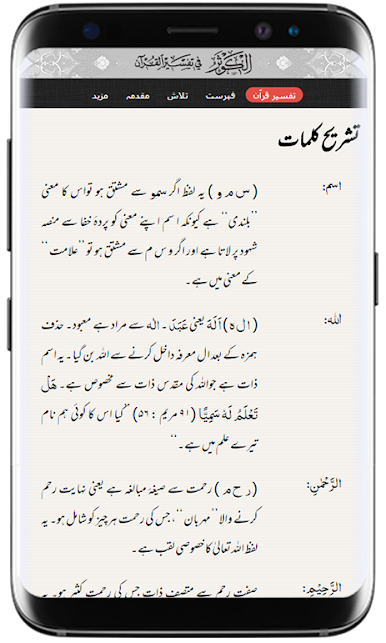 الکوثر فی تفسیر القرآن
تفسیر قرآن فہرست تلاش مقدمہ مزید
تشریح کلمات
اسم: ( س م و ) یہ لفظ اگر سمو سے مشتق ہو تواس کا معنی
’’بلندی‘‘ ہے کیونکہ اسم اپنے معنی کو پردۂ خفا سے منصہ
شہود پر لاتا ہے اور اگر و س م سے مشتق ہو تو ’’علامت‘‘
کے معنی میں ہے۔
اللہ: ( ا ل ہ ) اَلَہَ یعنی عَبَدَ ۔ الٰہ سے مراد ہے معبود۔ حذف
ہمزہ کے بعد ال معرفہ داخل کرنے سے اللہ بن گیا۔ یہ اسم
ذات ہے جواللہ کی مقدس ذات سے مخصوص ہے۔ ہَلۡ
تَعۡلَمُ لَہٗ سَمِیًّا (۹۱ مریم : ۵۶) ’’کیا اس کا کوئی ہم نام
تیرے علم میں ہے۔‘‘
الرَّحۡمٰنِ: ( ر ح م ) رحمت سے صیغۂ مبالغہ ہے یعنی نہایت رحم
کرنے والا’’مہربان‘‘، جس کی رحمت ہر چیز کو شامل ہو۔ یہ
لفظ اللہ تعالیٰ کا خصوصی لقب ہے۔
الرَّحِیۡمِ: صفت رحم سے متصف ذات جس کی رحمت کثیر ہو۔ یہ